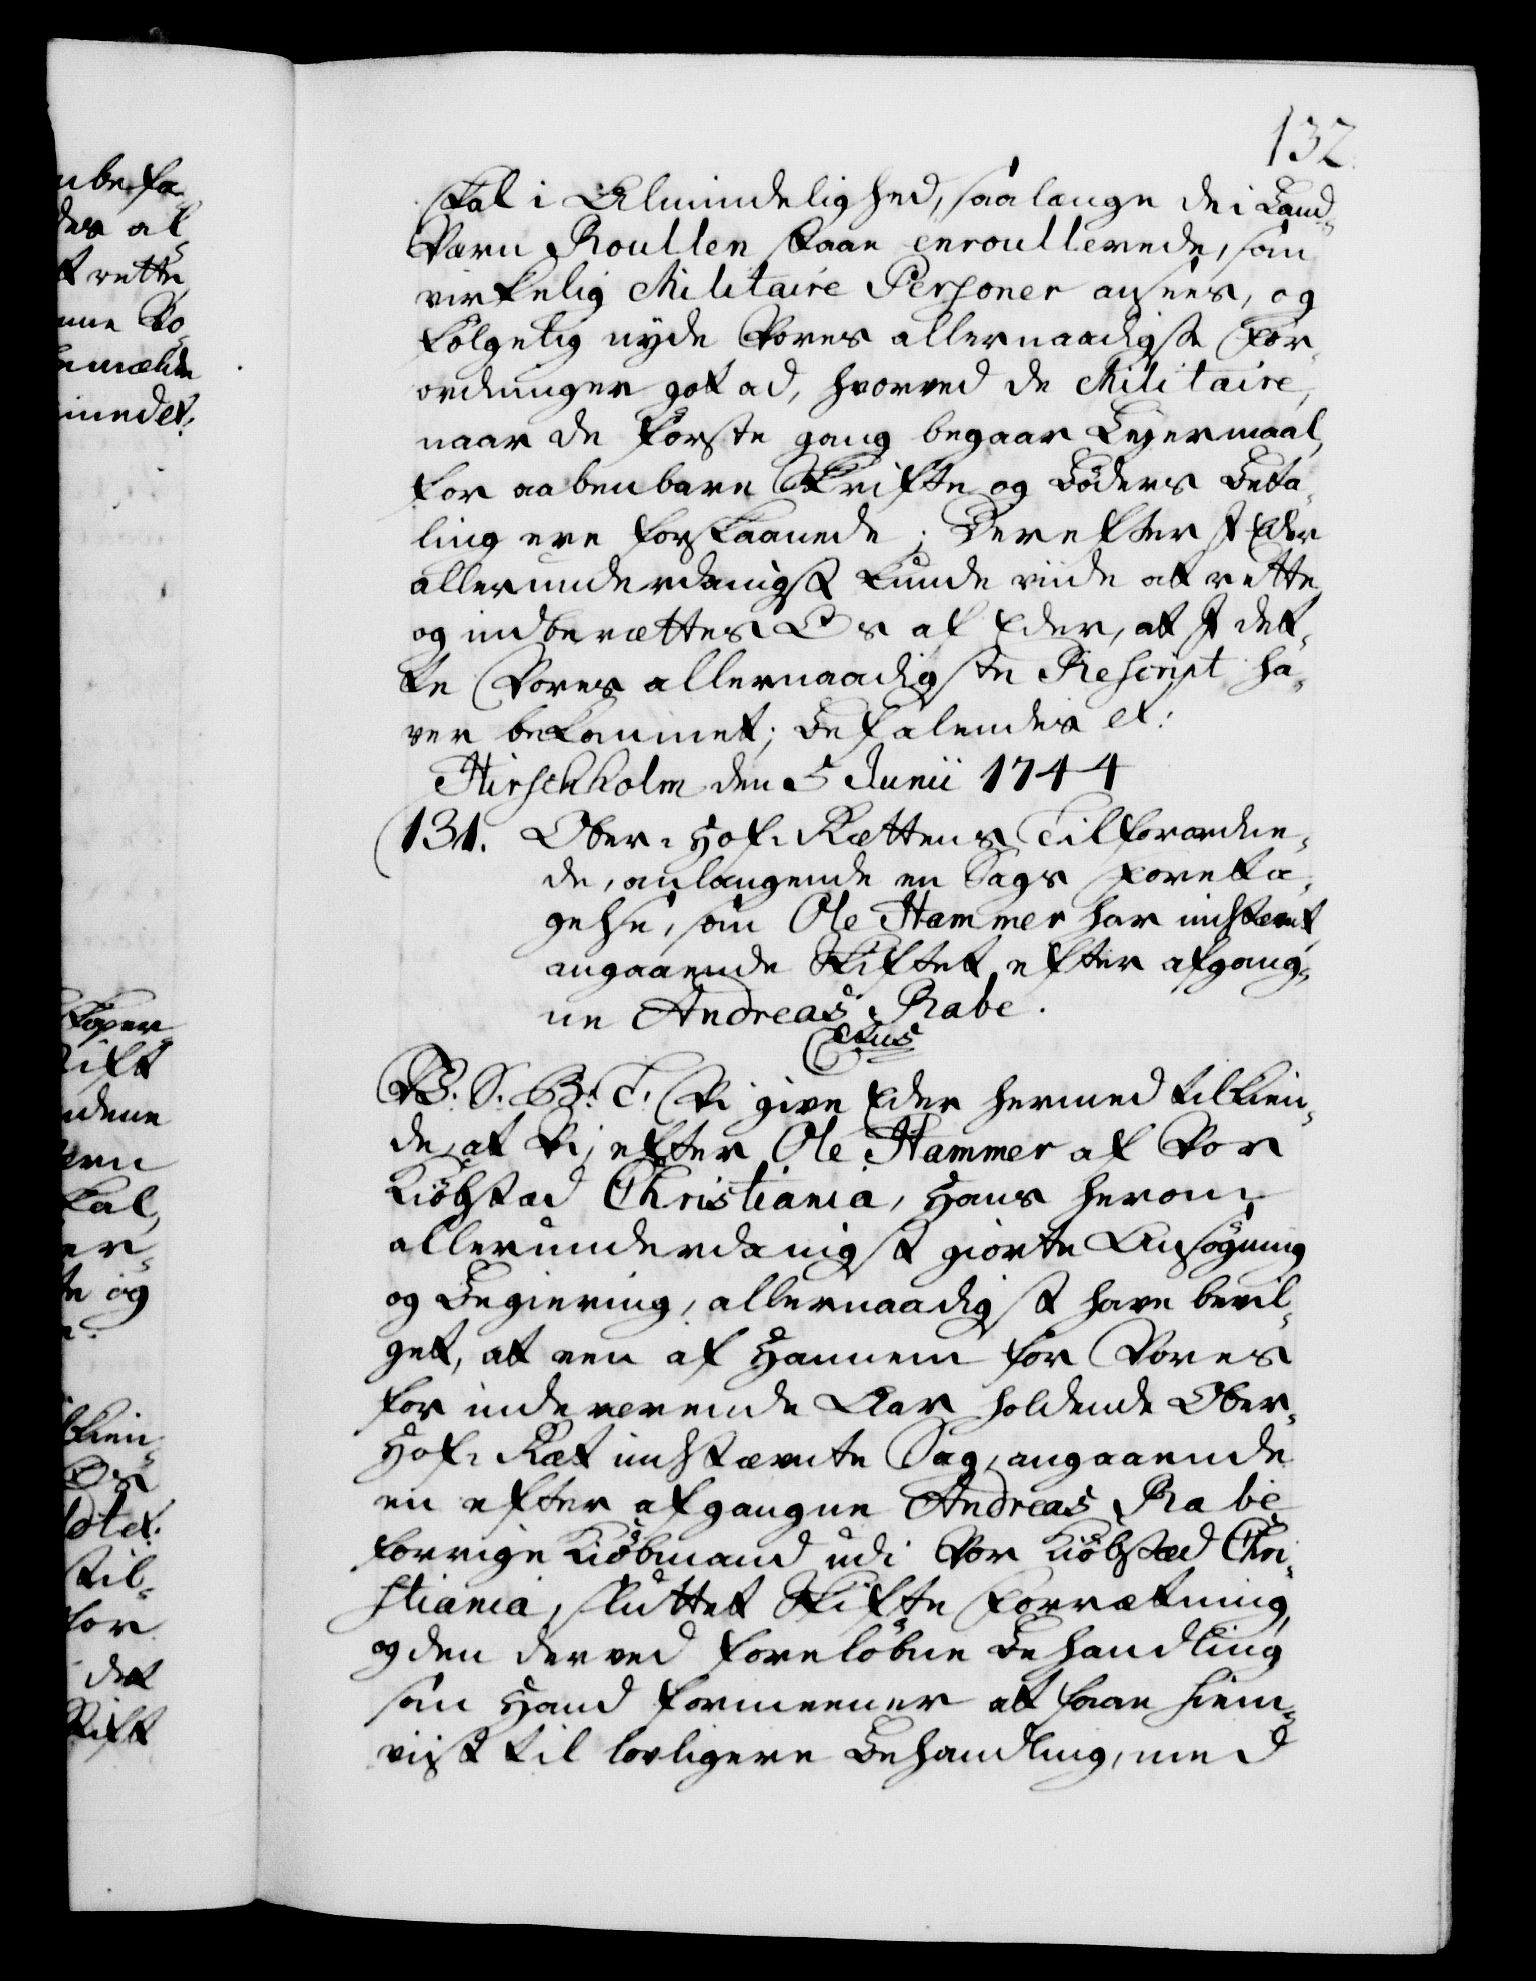 132.
skal i Almindelighed, saalænge de i Land-
Værn Roullen staae enroullerede, som
virkelig Militaire Personer ansees, og
følgelig nyde Vores allernaadigste For-
ordninger got ad, hvorved de Militaire,
naar de første gang begaar Leyermaal,
for aabenbare Skrifte og Bøders Beta-
ling ere forskaanede; Derefter I Eder
allerunderdanigst kunde viide at rette,
og indberættes Os af Eder, at I det-
te Vores allernaadigste Rescript ha-
ver bekommet; Befalendes et:
Hirschholm den 5 Junii 1744
131. Ober-Hof-Rættens Tilforordne-
de, anlangende en Sags Foreta-
gelse, som Ole Hammer har indstevnt,
angaaende Skiftet efter afgang-
ne Andreas Rabe.
C6tus
V. S. G. T. Vi give Eder hermed tilkien-
de, at Vi, efter Ole Hammer af Vor
Kiøbstad Christiania, Hans herom
allerunderdanigst giorte Ansøgning
og Begiering, allernaadigst have bevil-
get, at een af Hannem for Vores
for indeværende Aar holdende Ober-
Hof-Ræt indstævnte Sag, angaaende
en efter afgangne Andreas Rabe
forrige Kiøbmand udi Vor Kiøbstæd Chri-
stiania, sluttet Skifte Forrætning,
og den derved foreløbne Behandling
som Hand formeener at faae hiem-
vist til lovligere Behandling, med